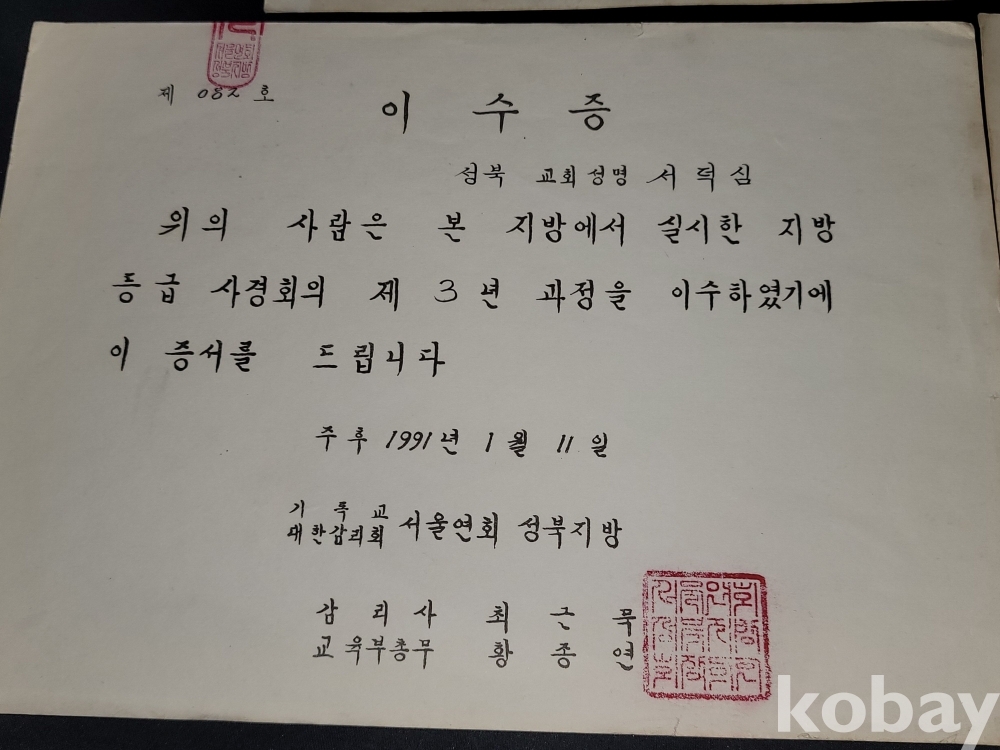 제 082 호
이 수 증
성북 교회 성명 서 덕 심
위의 사람은 본 지방에서 실시한 지방
등급 사경회의 제 3 년 과정을 이수하였기에
이 증서를 드립니다
주후 1991년 1월 11일
기독교
대한감리회 서울연회 성북지방
감리사 최근묵
교육부총무 황종연
kobay